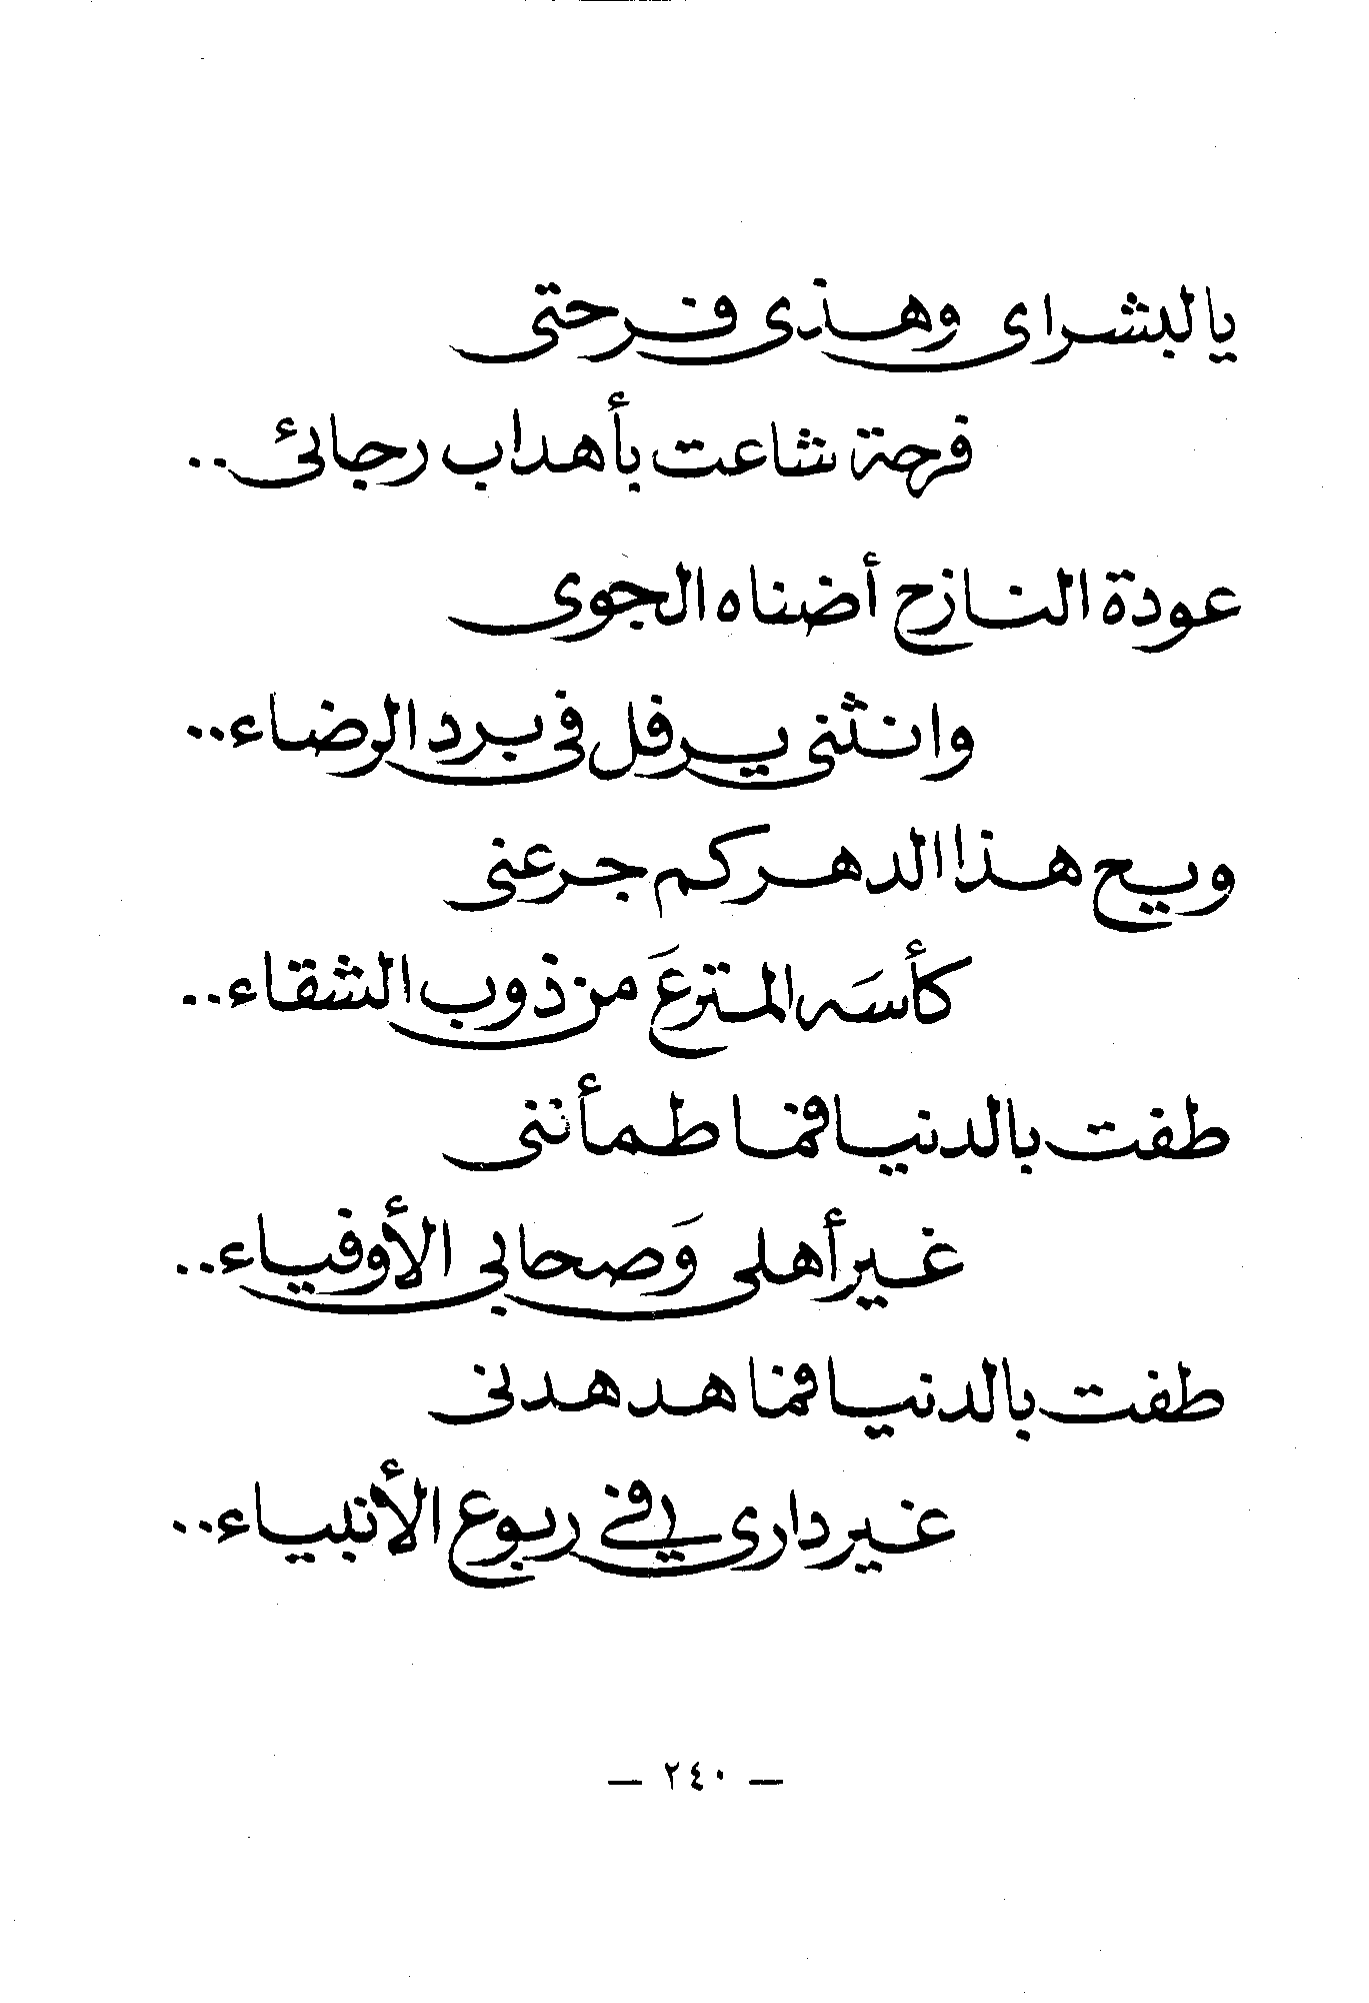 يالبشراى وهذى فرحتى
فرحة شاعت بأهداب رجائئ..
عودة النازح أضناه الجوى
وانثنى يرفل فى برد الرضاء..
ويح هذا الدهر كم جرعنى
كأسَه المترعَ من ذوب الشقاء..
طفت بالدنيا فما طمأننى
غير أهلى وَصحابى الأوفياء..
طفت بالدنيا فما هدهدنى
غير دارى فى ربوع الأنبياء..
— ٢٤٠ —